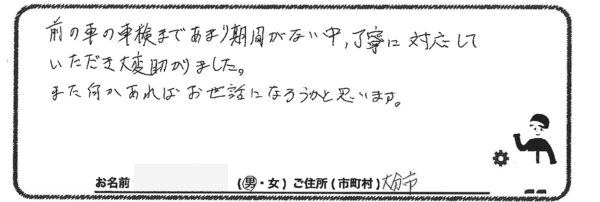 前の車の車検まであまり期間がない中、丁寧に対応して
いただき大変助かりました。
また何かあればお世話になろうかと思います。
お名前 (男・女) ご住所(市町村) 大分市